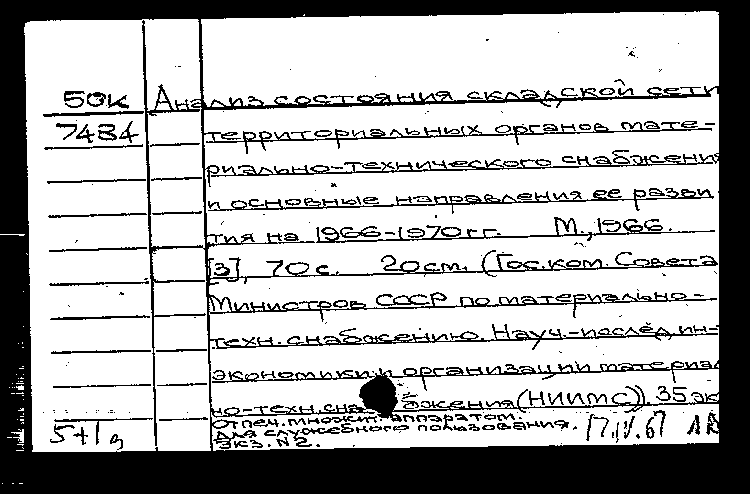 50к Анализ состояния складской сети
7484 территориальных органов мате-
риально-технического снабжения
и основные направления ее разви
тия на 1966-1970 гг. М., 1966.
[3], 70 с. 20 см. (Гос. ком. Совета
Министров СССР по материально-
техн. снабжению. Науч.-послед ин-
экономики и организации материал
но-техн. сна бжения (НИИМС)). 35 эк
Отпеч. множит. аппаратом.
Для служебного пользования.
Экз. N 2.
5+1 17.IV.67